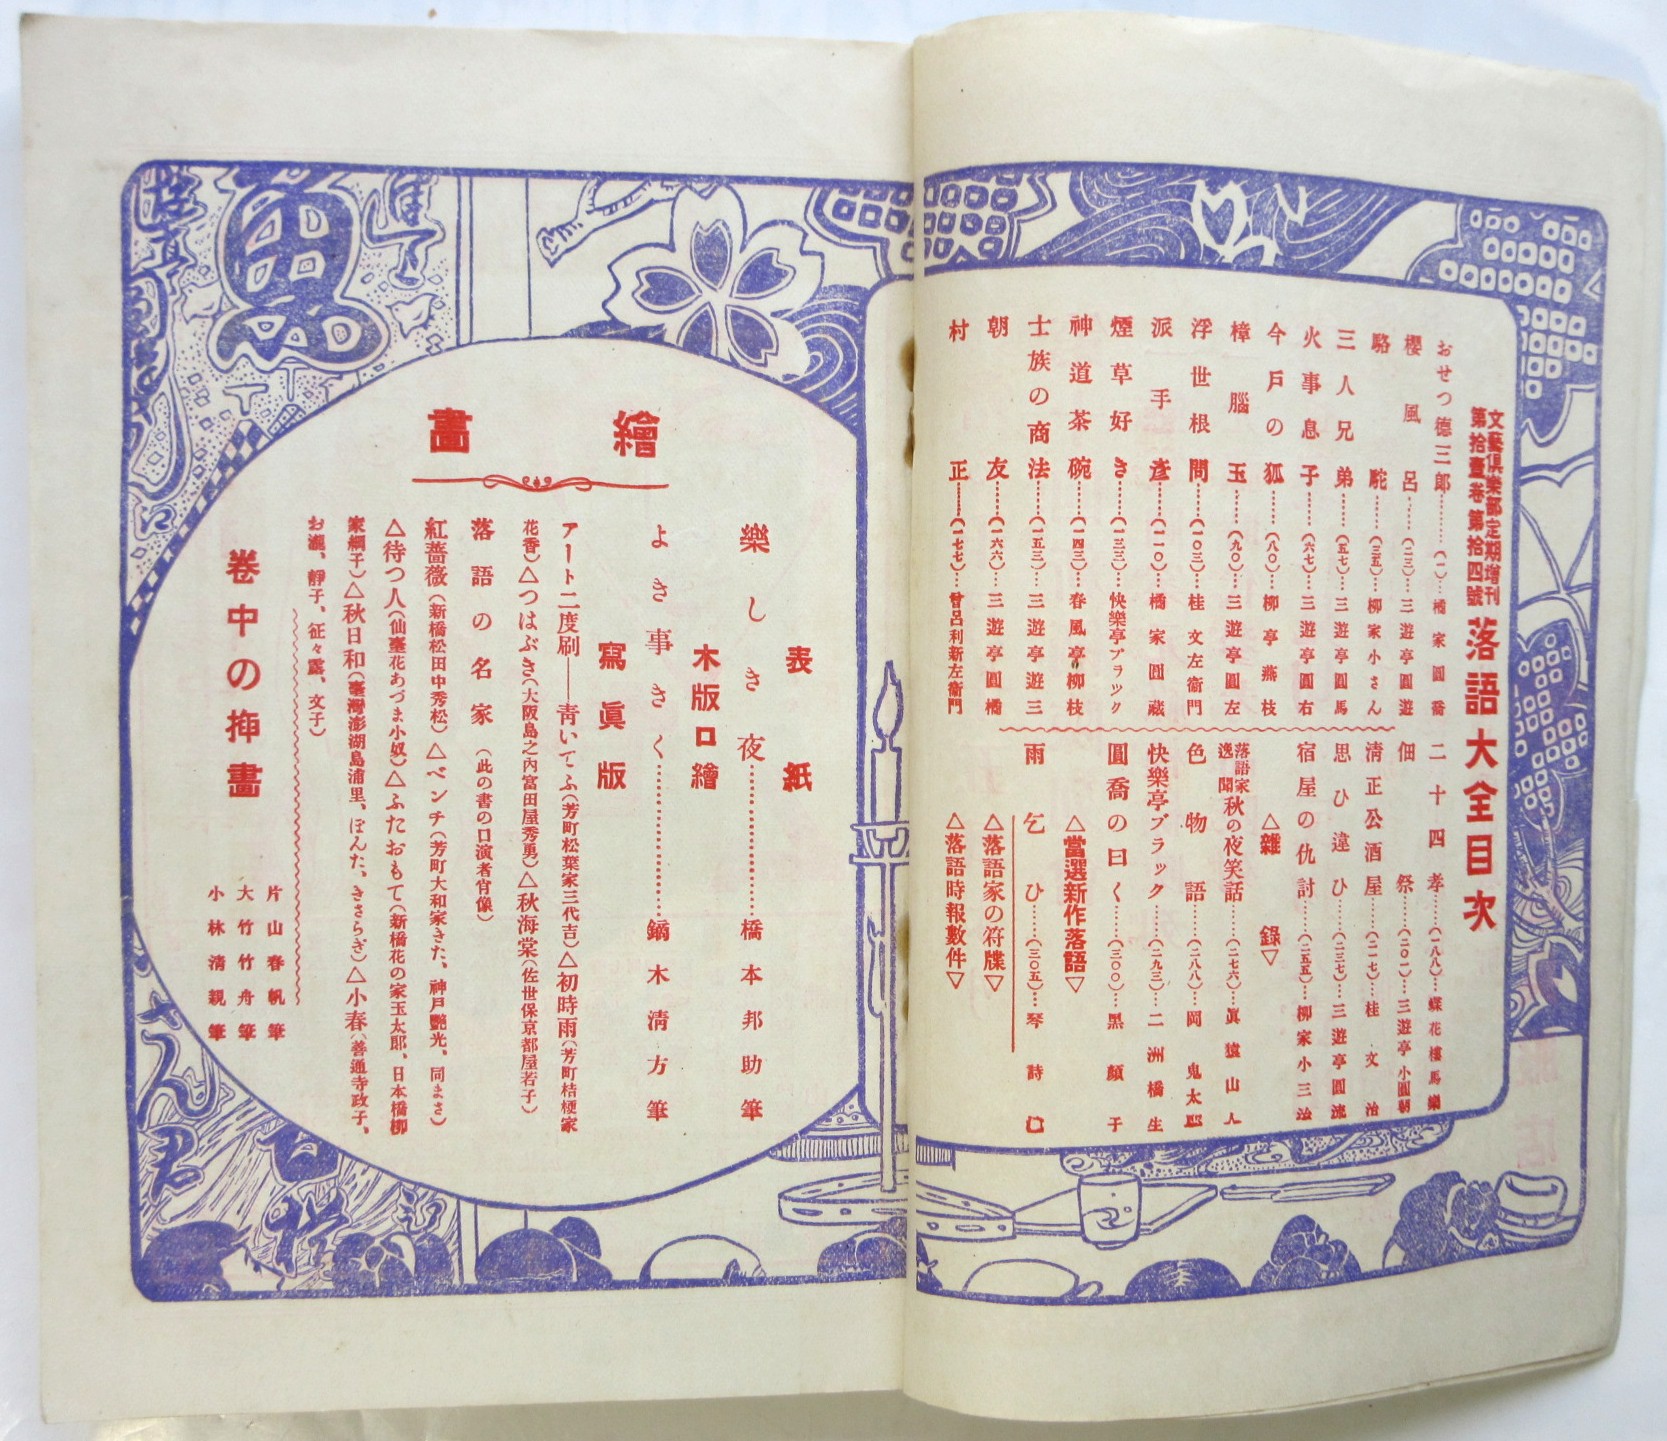 文藝俱樂部定期增刊
第拾壹卷第拾四號
落語大全目次
おせつ德三郎……(一)…橘家圓喬
櫻風呂……(二三)…三遊亭圓遊
駱駝……(三五)…柳家小さん
三人兄弟……(五七)…三遊亭圓馬
火事息子……(六七)…三遊亭圓右
今戶の狐……(八〇)…柳亭燕枝
樟腦玉……(九〇)…三遊亭圓左
浮世根問……(一〇三)…桂文左衞門
派手彥……(一一〇)…橘家圓藏
煙草好き……(一三三)…快樂亭ブラック
神道茶碗……(一四三)…春風亭柳枝
士族の商法……(一五三)…三遊亭遊三
朝友……(一六六)…三遊亭圓橘
村正……(一七七)…曾呂利新左衞門
二十四孝……(一八八)…蝶花樓馬樂
佃祭……(二〇一)…三遊亭小圓朝
淸正公酒屋……(二一七)…桂文治
思ひ違ひ……(二三七)…三遊亭圓流
宿屋の仇討……(二五五)…柳家小三治
△雜錄▽
落語家逸聞 秋の夜笑話……(二七六)…眞猿山人
色物語……(二八八)…岡鬼太郎
快樂亭ブラック……(二九三)…二洲橋生
圓喬の曰く……(三〇〇)…黑顏子
△當選新作落語▽
雨乞ひ……(三〇五)…琴詩
△落語家の符牒▽
△落語時報數件▽
繪畫
表紙
樂しき夜……橋本邦助筆
木版口繪
よき事きく……鏑木淸方筆
寫眞版
アート二度刷――靑いてふ(芳町松葉家三代吉)△初時雨(芳町桔梗家
花香)△つはぶき(大阪島之內富田屋秀勇)△秋海棠(佐世保京都屋若子)
落語の名家(此の書の口演者肖像)
紅薔薇(新橋松田中秀松)△ベンチ(芳町大和家きた、神戶艷光、同まさ)
△待つ人(仙臺花あづま小奴)△ふたおもて(新橋花の家玉太郎、日本橋柳
家綱子)△秋日和(臺灣澎湖島浦里、ぽんた、きさらぎ)△小春(善通寺政子、
お瀧、靜子、征々露、文子)
卷中の揷畫
片山春帆筆
大竹竹舟筆
小林淸親筆